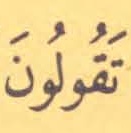 تَقُولُونَ